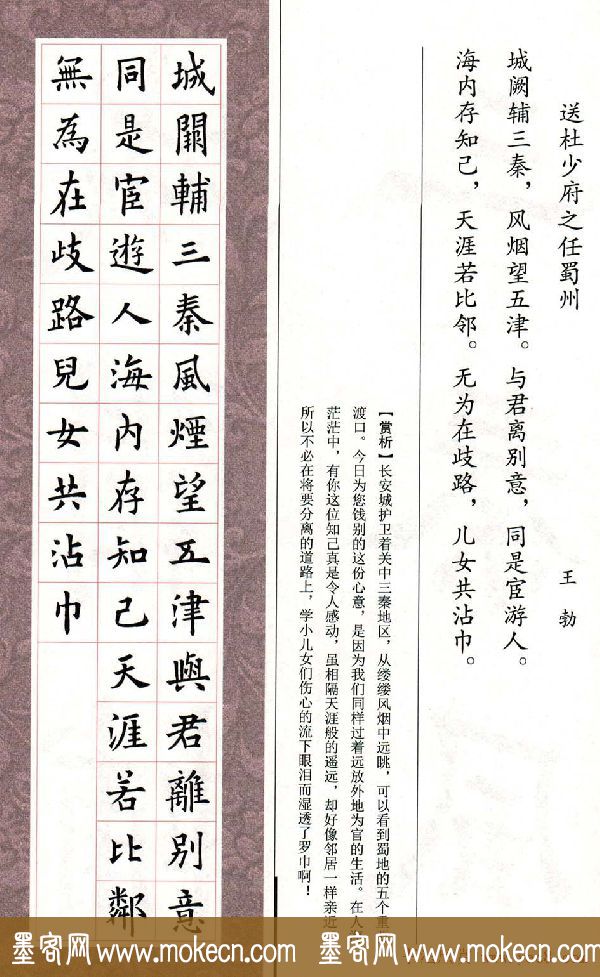 送杜少府之任蜀州
王勃
城阙辅三秦，风烟望五津。与君离别意，同是宦游人。
海内存知己，天涯若比邻。无为在歧路，儿女共沾巾。
【赏析】长安城护卫着关中三秦地区，从缕缕风烟中远眺，可以看到蜀地的五个重
渡口。今日为您饯别的这份心意，是因为我们同样过着远放外地为官的生活。在人
茫茫中，有你这位知己真是令人感动，虽相隔天涯般的遥远，却好像邻居一样亲近
所以不必在将要分离的道路上，学小儿女们伤心的流下眼泪而湿透了罗巾啊！
城闕輔三秦風煙望五津與君離別意
同是宦遊人海内存知己天涯若比鄰
無為在歧路兒女共沾巾
墨客网 www.mokecn.com 墨客网 www.mokecn.com